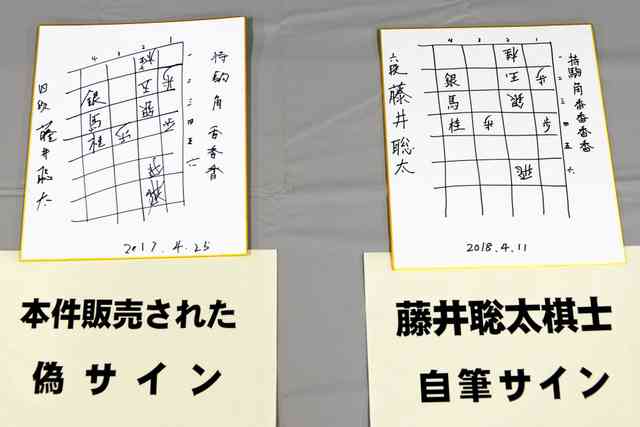 4 3 2 1
持駒 角 香香香
一
二
三
四
五
六
桂
銀 玉 歩
馬 銀
桂 歩
四段 藤井聡太
2017.4.25
4 3 2 1
持駒 角 香香香香
一
二
三
四
五
六
桂
銀 玉 歩
馬 銀
桂 歩 歩
飛
六段 藤井聡太
2018.4.11
本件販売された
偽サイン
藤井聡太棋士
自筆サイン